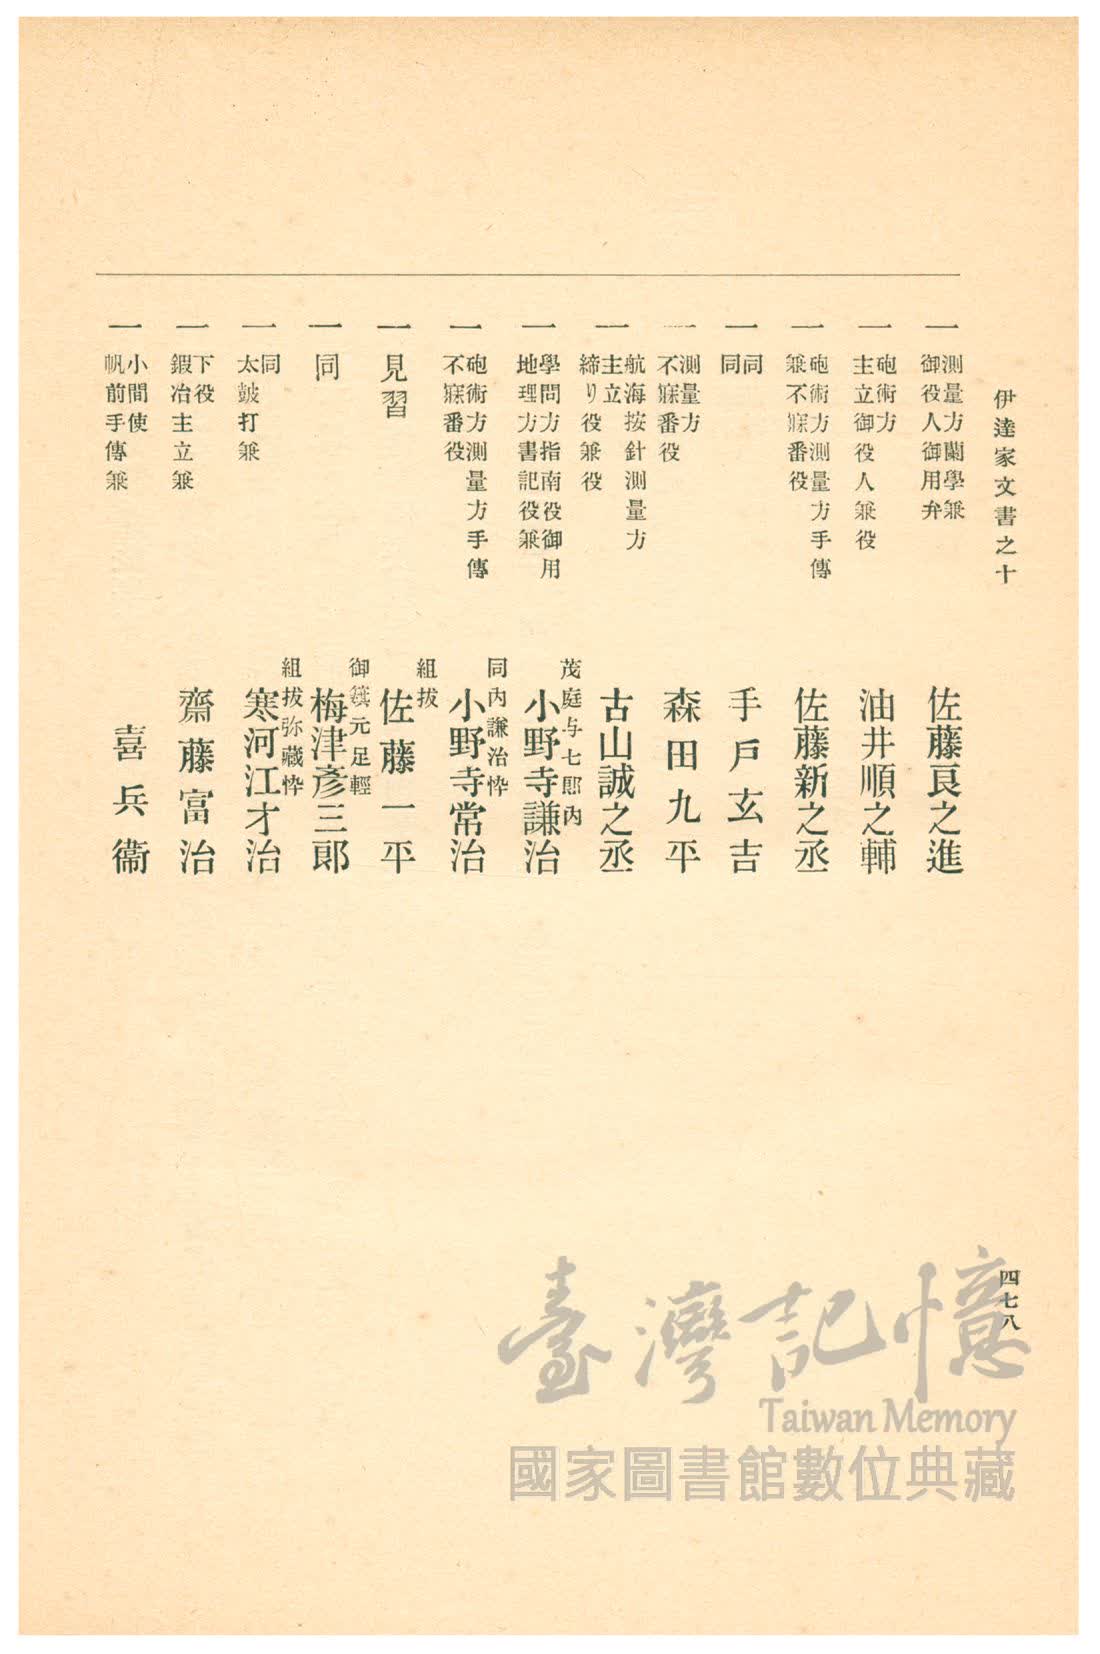 伊達家文書之十
一 測量方蘭學兼
御役人御用弁
佐藤良之進
一 砲術方
主立御役人兼役
油井順之輔
一 砲術方測量方手傳
兼不寐番役
佐藤新之丞
一 同
同
手戸玄吉
一 測量方
不寐番役
森田九平
一 航海按針測量方
主立
締り役兼役
古山誠之丞
一 學問方指南役御用
地理方書記役兼
茂庭与七郎内
小野寺謙治
一 砲術方測量方手傳
不寐番役
同内謙治悴
小野寺常治
一 見習
組拔
佐藤一平
一 同
御簱元足輕
梅津彥三郞
一 同
太皷打兼
組拔弥藏悴
寒河江才治
一 下役
鍜冶主立兼
齋藤富治
一 小間使
帆前手傳兼
喜兵衞
四七八
臺灣記憶
Taiwan Memory
國家圖書館數位典藏